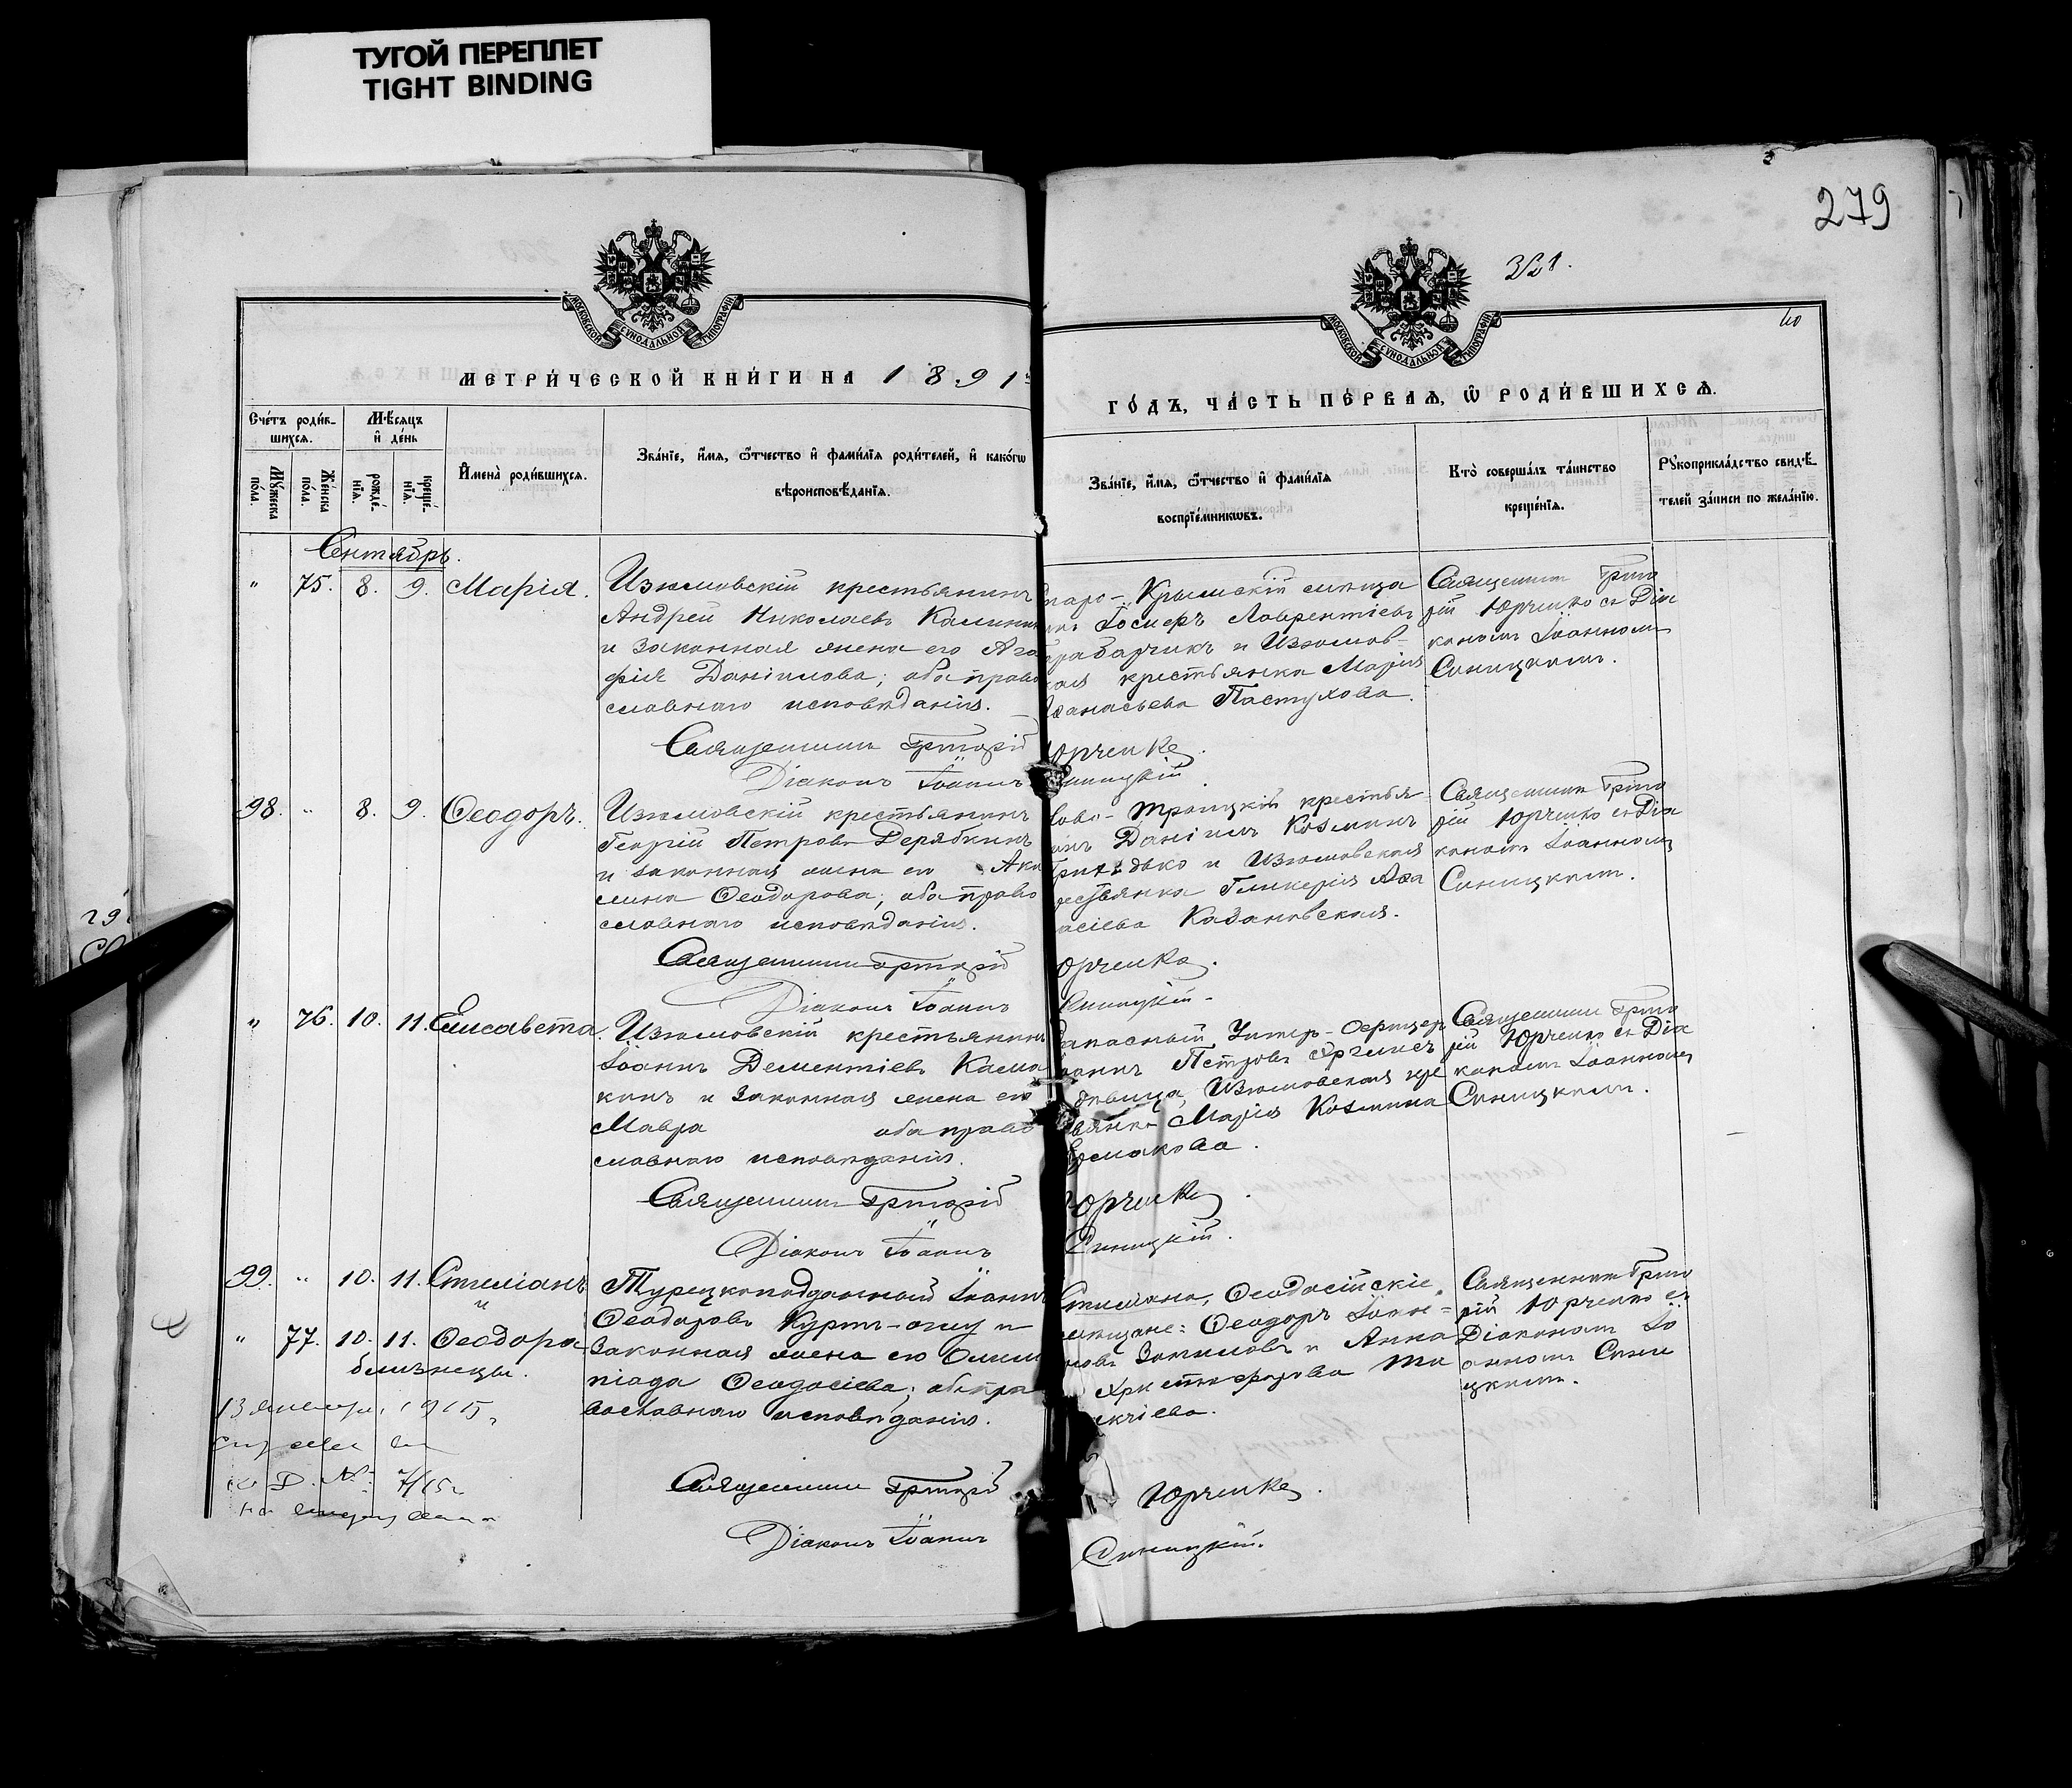 ТУГОЙ ПЕРЕПЛЕТ
TIGHT BINDING
279
321.
МОСКОВСКОЙ СУНОДАЛЬНОЙ ТИПОГРАФІИ
МОСКОВСКОЙ СУНОДАЛЬНОЙ ТИПОГРАФІИ
МЕТРИ́ЧЕСКОЙ КНИ́ГИ НА 1891
ГО́ДЪ, ЧА́СТЬ ПЕ́РВАѦ, Ѡ҆ РОДИ́ВШИХСѦ.
Сче́тъ роди́в-
шихсѧ.
Мѣ́сѧцъ
и҆ де́нь
Мꙋ́жеска по́ла.
Же́нска по́ла.
рожде́-
нїѧ.
креще́-
нїѧ.
И҆мена̀ роди́вшихсѧ.
Зва́нїе, и҆́мѧ, ѻ҆́тчество и҆ фами́лїѧ роди́телей, и҆ како́гѡ
вѣроисповѣ́данїѧ.
Зва́нїе, и҆́мѧ, ѻ҆́тчество и҆ фами́лїѧ
воспрїе́мникѡвъ.
Кто̀ соверша́лъ та́инство
креще́нїѧ.
Рꙋкоприкла́дство свидѣ́-
телей за́писи по жела́нїю.
Сентябрь.
" 75. 8. 9. Марія.
Изюмовскій крестьянинъ
Андрей Николаевъ Калинин
и законная жена его Ага
фія Даніилова; оба право
славнаго исповѣданія.
таро-Крымскій мѣща
Госифъ Лаврентіевъ
и Изюмов-
кая крестьянка Марія
фанасьева Пастухова.
Священник Григо
рій Юрченко съ Діа
кономъ Іоанномъ
Синицкимъ.
Священникъ Григорій Юрченко.
Діаконъ Іоаннъ Синицкій.
98. " 8. 9. Ѳеодоръ.
Изюмовскій крестьянинъ
Георгій Петровъ Дерябкинъ
и законная жена его Аки
лина Ѳеодорова; оба право
славнаго исповѣданія.
ово-Троицкій крестья-
инъ Даніилъ Козминъ
Гритѣдько и Изюмовская
рестьянка Гликерія Аѳа
асіева Казановская.
Священник Григо
рій Юрченко съ Діа
кономъ Іоанномъ
Синицкимъ.
Священникъ Григорій Юрченко.
Діаконъ Іоаннъ Синицкій.
" 76. 10. 11. Елисавета.
Изюмовскій крестьянинъ
Іоаннъ Дементіевъ Калма
кинъ и законная жена его
Мавра оба право
славнаго исповѣданія.
апасный Унтеръ-Офицер
оаннъ Петровъ
дѣвица, Изюмовская кре
ьянка Марія Козмина
Ермакова.
Священник Григо
рій Юрченко съ Діа
кономъ Іоанномъ
Синицкимъ.
Священникъ Григорій Юрченко.
Діаконъ Іоаннъ Синицкій.
99. " 10. 11. Стиліанъ
и
" 77. 10. 11. Ѳеодора
близнецы.
Турецкоподданный Іоаннъ
Ѳеодоровъ Курт-оглу и
законная жена его Олим
піада Ѳеодосіева; оба пра
вославнаго исповѣданія.
Стиліана, Ѳеодосійскіе
мѣщане: Ѳеодоръ Іоан-
новъ и Анна
Христофорова
Священник Григо
рій Юрченко съ
Діаконом Іо
анномъ Сини
цкимъ.
13 января 1915 г.
по Д. № 7/15 г.
Священникъ Григорій Юрченко.
Діаконъ Іоаннъ Синицкій.